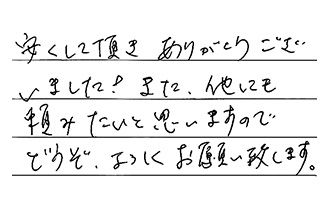 安くして頂き ありがとうござい
ました! また、他にも
頼みたいと思いますので
どうぞ、よろしくお願い致します。